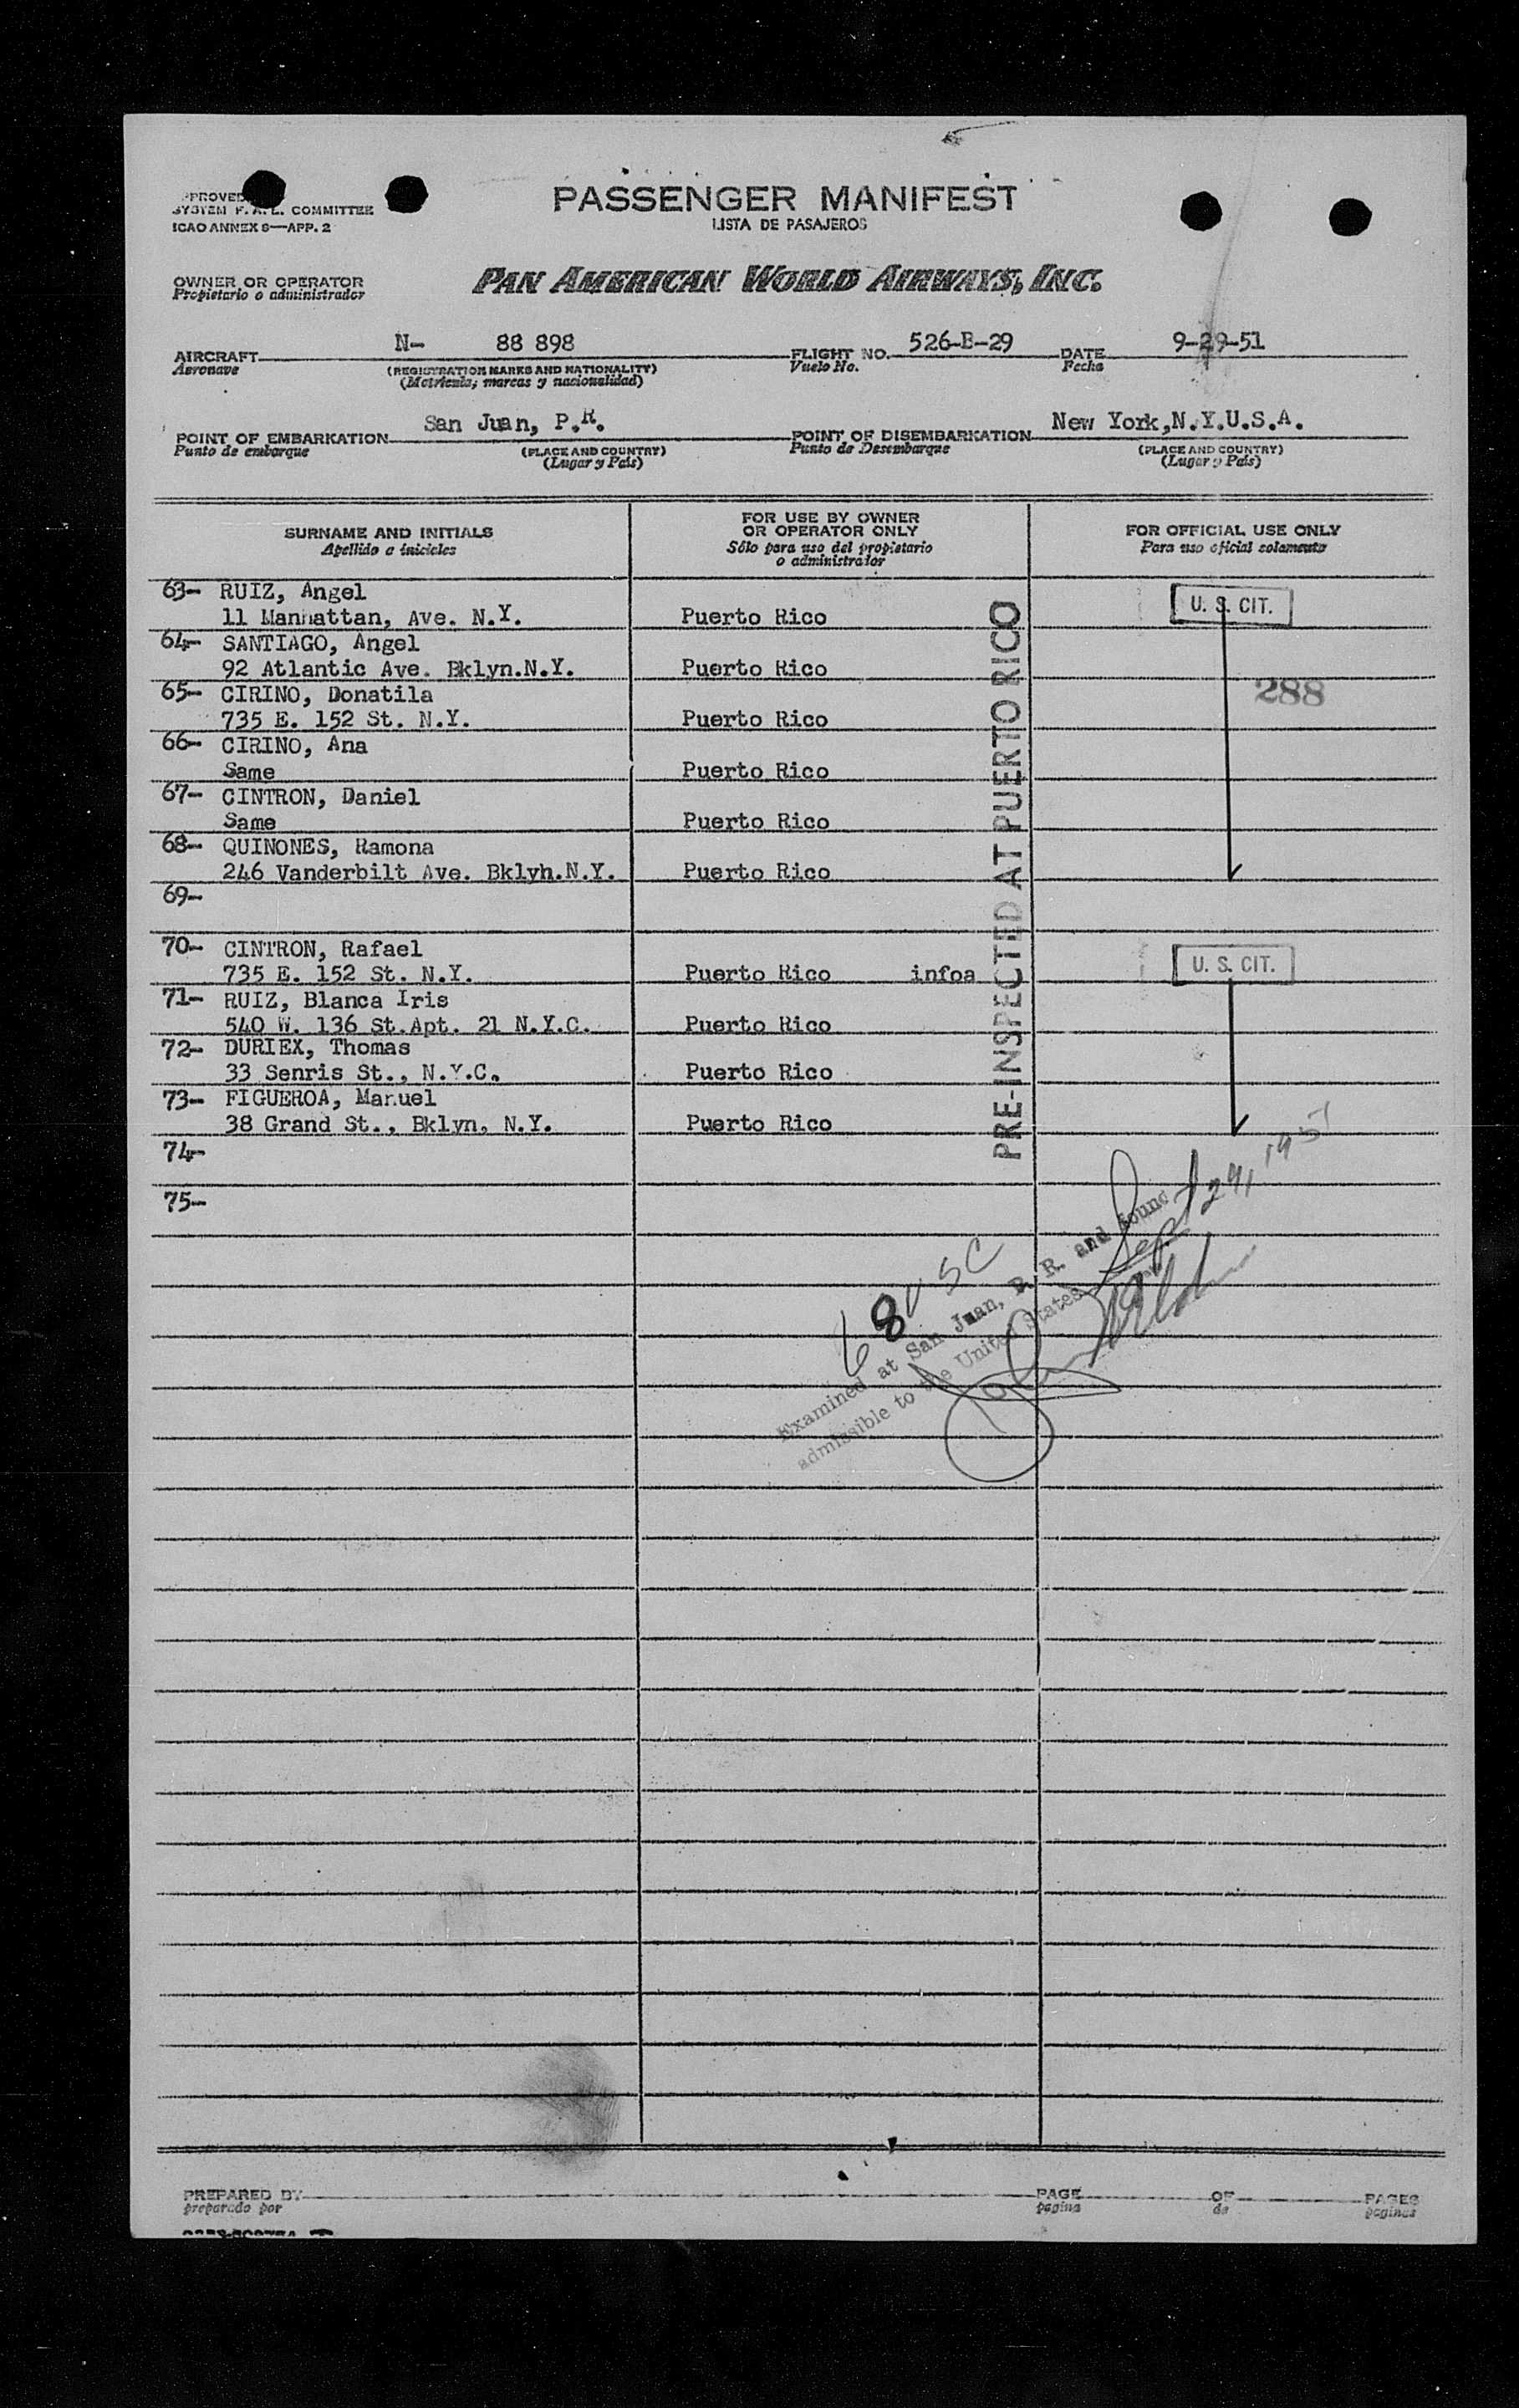 PROVED
SYSTEM F. A. L. COMMITTEE
ICAO ANNEX 9—APP. 2
PASSENGER MANIFEST
LISTA DE PASAJEROS
OWNER OR OPERATOR
Propietario o administrador
PAN AMERICAN WORLD AIRWAYS, INC.
AIRCRAFT N- 88 898 FLIGHT NO. 526-B-29 DATE 9-29-51
Aeronave (REGISTRATION MARKS AND NATIONALITY) Vuelo No. Fecha
(Matricula; marcas y nacionalidad)
POINT OF EMBARKATION San Juan, P.R. POINT OF DISEMBARKATION New York,N.Y.U.S.A.
Punto de embarque (PLACE AND COUNTRY) Punto de Desembarque (PLACE AND COUNTRY)
(Lugar y País) (Lugar y País)
SURNAME AND INITIALS
Apellido e iniciales
FOR USE BY OWNER
OR OPERATOR ONLY
Sólo para uso del propietario
o administrador
FOR OFFICIAL USE ONLY
Para uso oficial solamente
63- RUIZ, Angel
11 Manhattan, Ave. N.Y. Puerto Rico U. S. CIT.
64- SANTIAGO, Angel
92 Atlantic Ave. Bklyn.N.Y. Puerto Rico
65- CIRINO, Donatila 288
735 E. 152 St. N.Y. Puerto Rico
66- CIRINO, Ana
Same Puerto Rico
67- CINTRON, Daniel
Same Puerto Rico
68- QUINONES, Ramona
246 Vanderbilt Ave. Bklyh.N.Y. Puerto Rico
69-
70- CINTRON, Rafael
735 E. 152 St. N.Y. Puerto Rico infoa U. S. CIT.
71- RUIZ, Blanca Iris
540 W. 136 St.Apt. 21 N.Y.C. Puerto Rico
72- DURIEX, Thomas
33 Senris St., N.Y.C. Puerto Rico
73- FIGUEROA, Manuel
38 Grand St., Bklyn, N.Y. Puerto Rico
74-
75-
PRE-INSPECTED AT PUERTO RICO
68 USC
Examined at San Juan, P. R. and found
admissible to the United States
Sept 29, 1951
PREPARED BY PAGE OF PAGES
preparado por pagina de paginas